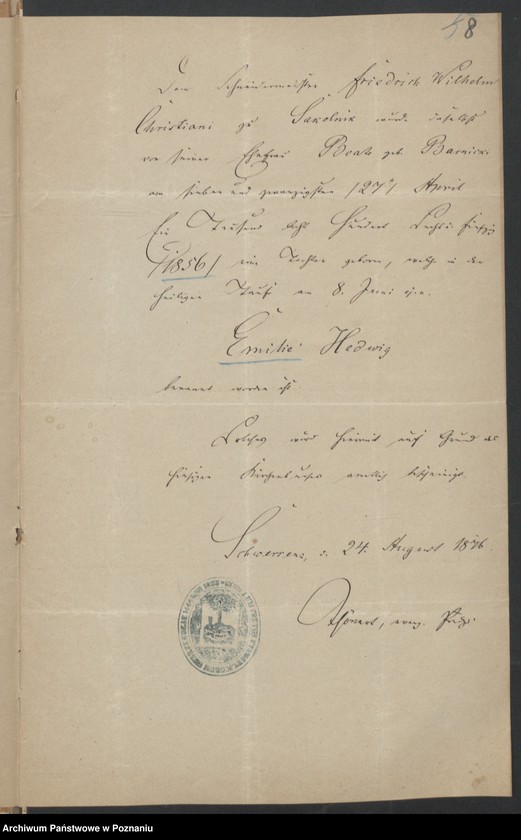 58
Dem Schneidermeister Friedrich Wilhelm
Christiani zu Sakolnik wurde daselbst
von seiner Ehefrau Beate geb. Barnick
am sieben und zwanzigsten /27/ April
Ein Tausend Acht Hundert Sechs und fünfzig
/1856/ eine Tochter geboren, welche in der
heiligen Taufe am 8. Juni
Emilie Hedwig
benannt worden ist.
Solches wird hiermit auf Grund des
hiesigen Kirchenbuches amtlich bescheinigt.
Schwersenz, d. 24. August 1876.
evang.
Archiwum Państwowe w Poznaniu